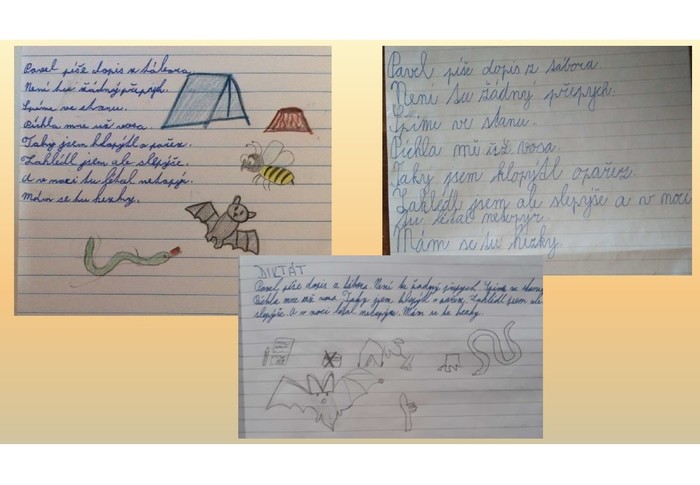 Pavel píše dopis z tábora.
Není tu žádný přepych.
Spíme ve stanu.
Píchla mne už vosa.
Taky jsem klopýtl o pařez.
Zahlédl jsem ale slepýše.
A v noci tu létal netopýr.
Mám se tu hezky.
Pavel píše dopis z tábora
Není tu žádný přepych.
Spíme ve stanu.
Píchla mě už vosa.
Taký jsem klopýtl opařez.
Zahlédl jsem ale slepýše a v noci
tu létal netopýr.
Mám se tu hezky
DIKTÁT
Pavel píše dopis z tábora. Není tu žádný přepych. Spíme ve stanu.
Píchla mne už vosa. Taky jsem klopýtl o pařez. Zahlédl jsem ale
slepýše. A v noci létal netopýr. Mám se tu hezky.